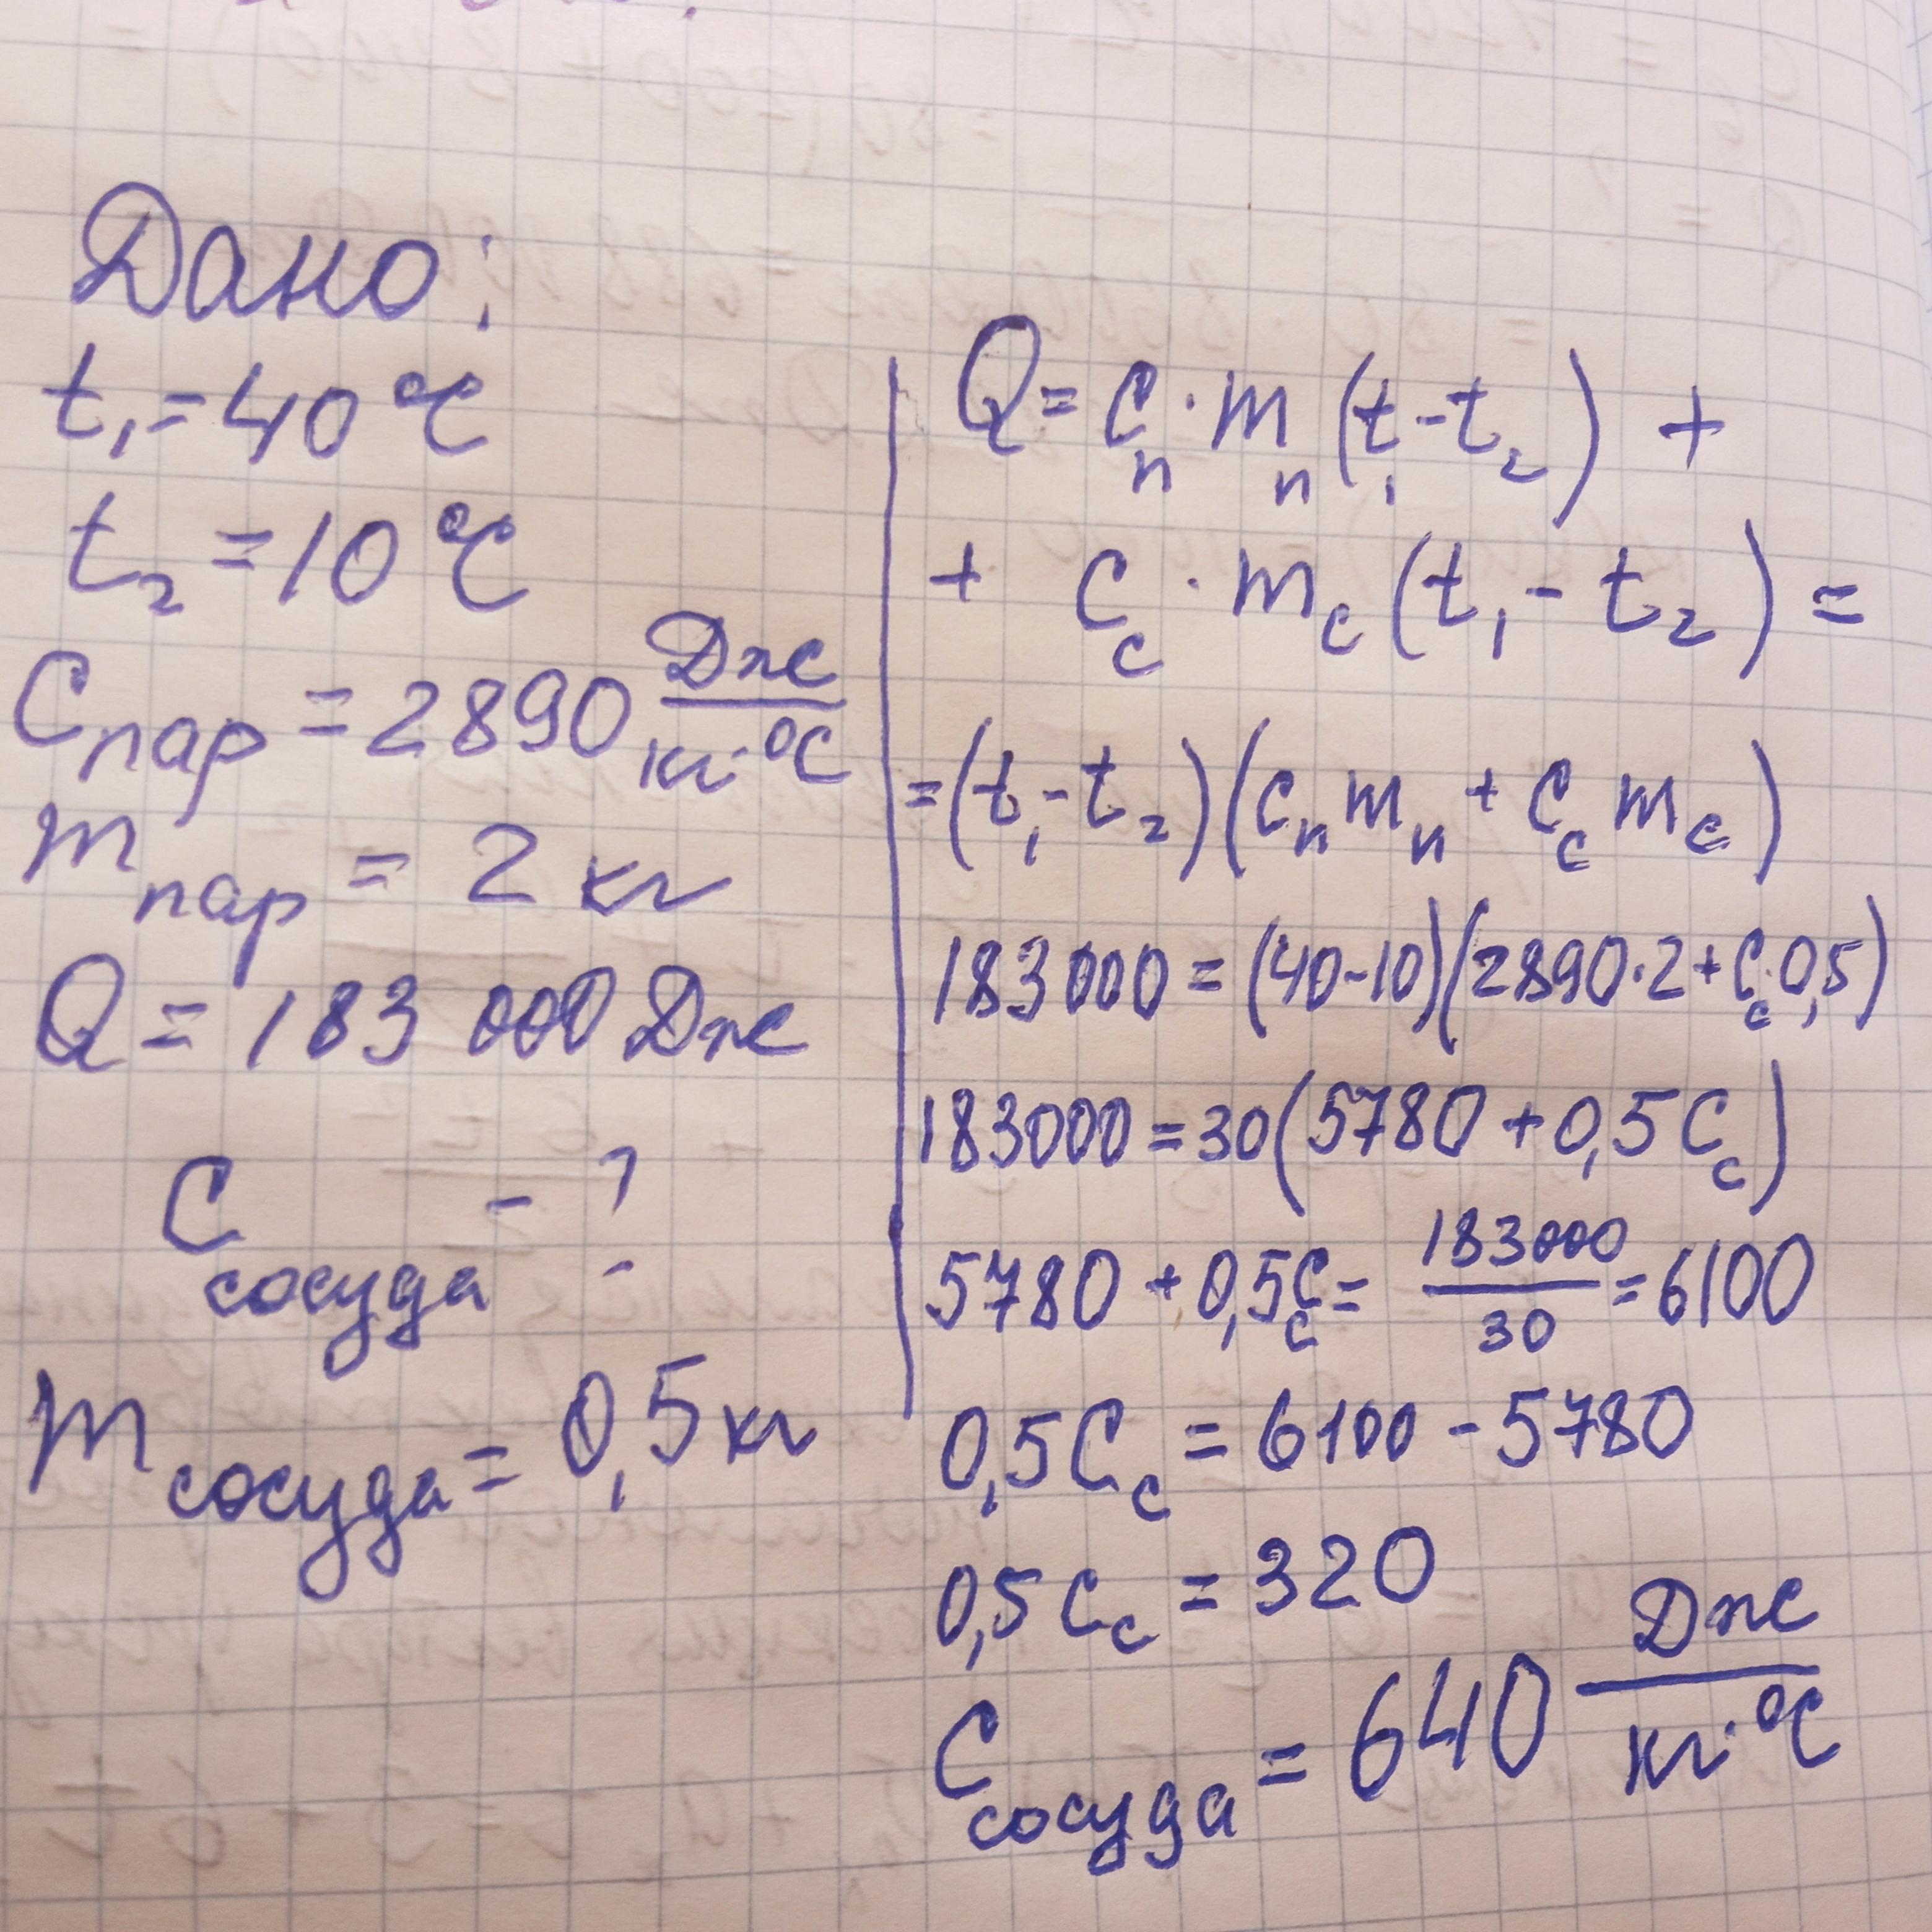 Дано:
t₁ = 40 °C
t₂ = 10 °C
Cпар = 2890 Дж/кг·°C
mпар = 2 кг
Q = 183 000 Дж
Cсосуда - ?
mсосуда = 0,5 кг
Q = Cп · mп (t₁ - t₂) +
+ Cс · mс (t₁ - t₂) =
= (t₁ - t₂)(Cп mп + Cс mс)
183000 = (40-10)(2890·2 + Cс·0,5)
183000 = 30(5780 + 0,5Cс)
5780 + 0,5Cс = 183000/30 = 6100
0,5Cс = 6100 - 5780
0,5Cс = 320
Cсосуда = 640 Дж/кг·°C